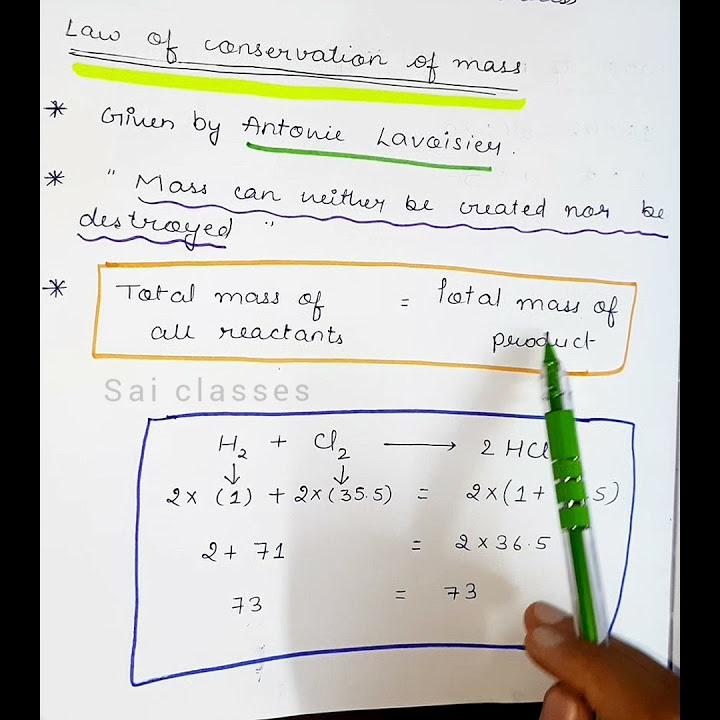 Law of conservation of mass
* Given by Antonie Lavoisier.
* " Mass can neither be created nor be
destroyed "
* Total mass of = Total mass of
all reactants product
Sai classes
H₂ + Cl₂ ⟶ 2 HCl
↓ ↓
2× (1) + 2×(35.5) = 2×(1+ 5)
2 + 71 = 2 × 36.5
73 = 73